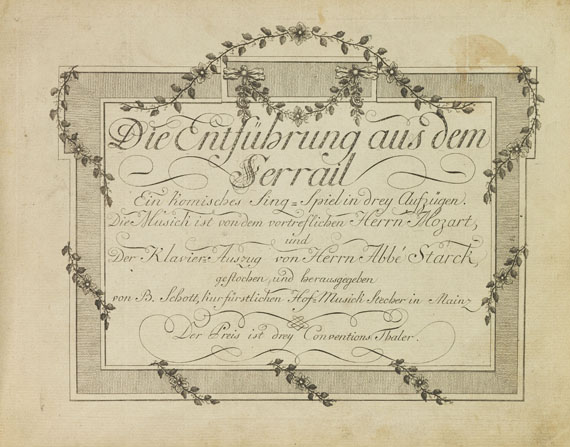 Die Entführung aus dem
Serrail
Ein komisches Sing=Spiel in drey Aufzügen.
Die Musick ist von dem vortreflichen Herrn Mozart,
und
Der Klavier Auszug von Herrn Abbé Starck,
gestochen, und herausgegeben
von B. Schott, kurfürstlichen Hof-Musick Stecher in Mainz
Der Preis ist drey Conventions Thaler.